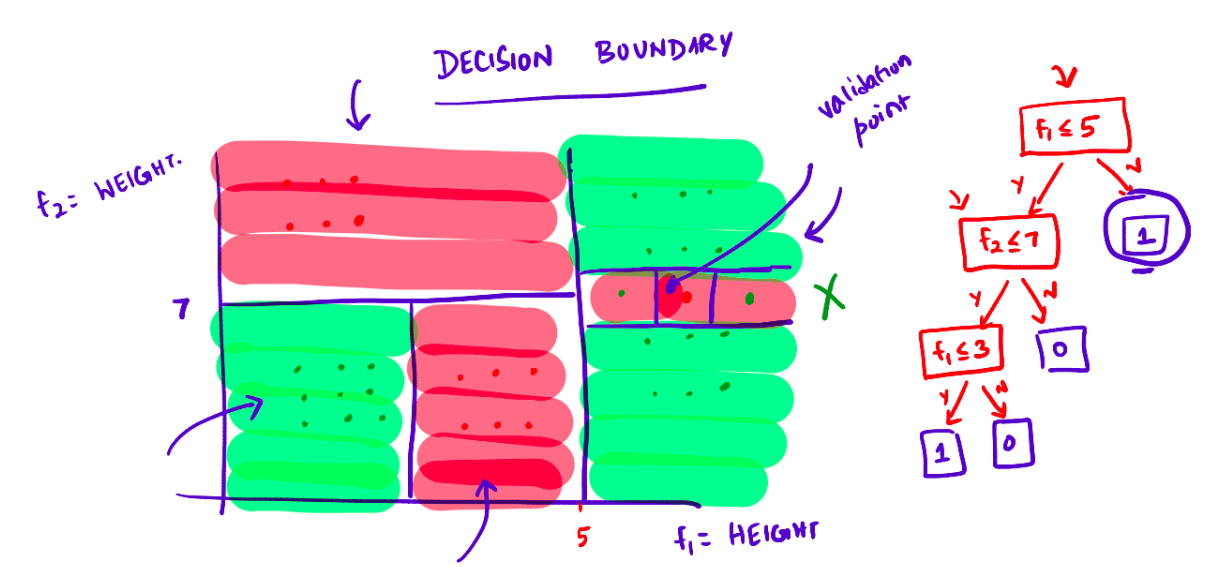 DECISION BOUNDARY
validation
point
f₂= WEIGHT.
7
X
5
f₁= HEIGHT
f₁ ≤ 5
Y
N
f₂ ≤ 7
1
Y
N
f₁ ≤ 3
0
Y
N
1
0